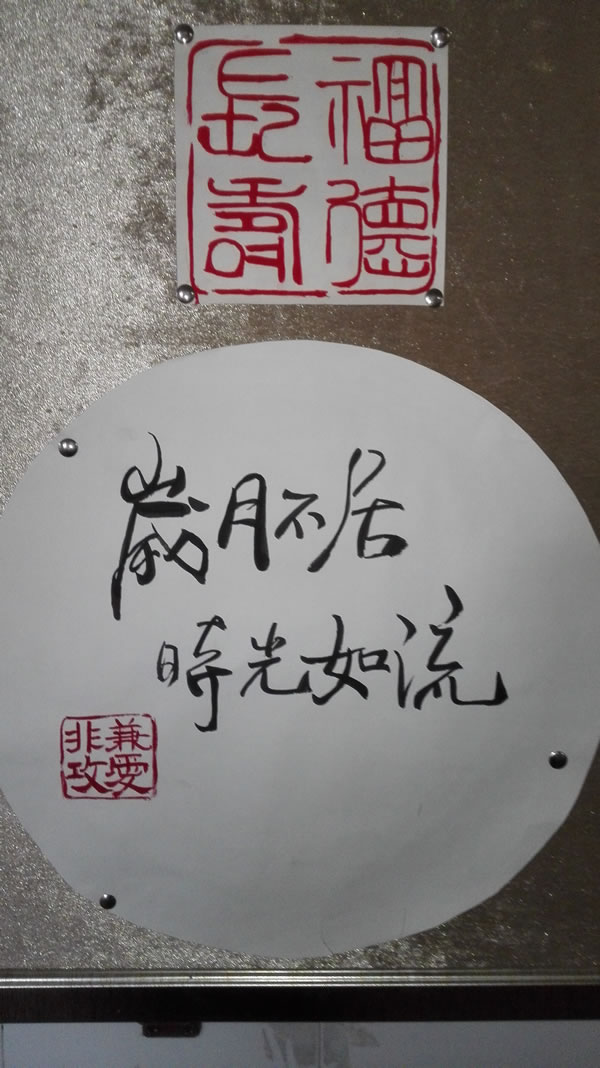 福德
長壽
歲月不居
時光如流
兼愛
非攻